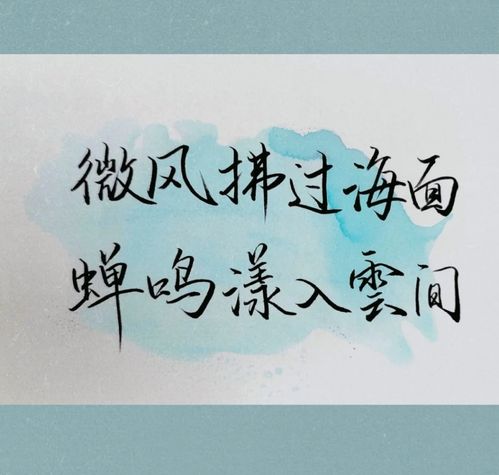 微风拂过海面
蝉鸣漾入雲间